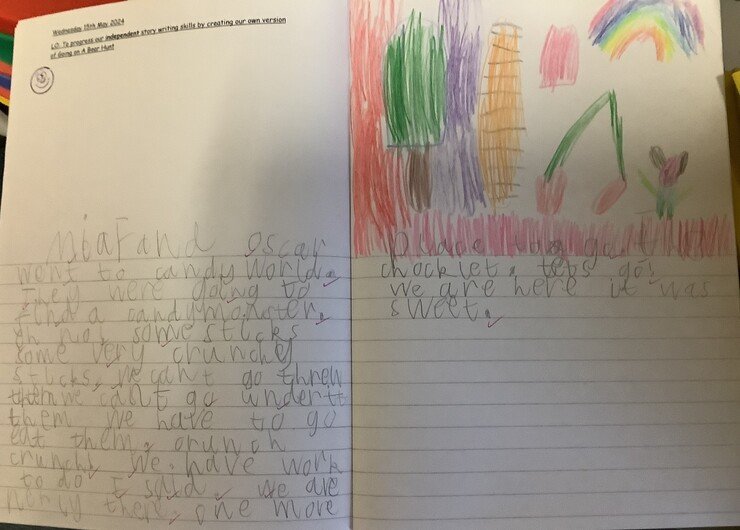 Wednesday 15th May 2024
LO: To progress our independent story writing skills by creating our own version
of Going on A Bear Hunt
MiaF and Oscar
went to candy world.
They were going to
find a candy monster.
oh no! some sticks
some very crunchy
sticks, we can't go threw
them we can't go under it
them we have to go
eat them, crunch
crunch! we have work
to do I said. we are
nerly there. one more
place too go
chocklet. tets go!
we are here it was
sweet.